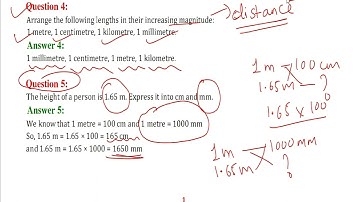 Question 4:
Arrange the following lengths in their increasing magnitude:
1 metre, 1 centimetre, 1 kilometre, 1 millimetre.
Answer 4:
1 millimetre, 1 centimetre, 1 metre, 1 kilometre.
Question 5:
The height of a person is 1.65 m. Express it into cm and mm.
Answer 5:
We know that 1 metre = 100 cm and 1 metre = 1000 mm
So, 1.65 m = 1.65 × 100 = 165 cm
and 1.65 m = 1.65 × 1000 = 1650 mm
distance
1m 100 cm
1.65m ?
1.65 × 100
1m 1000 mm
1.65m ?